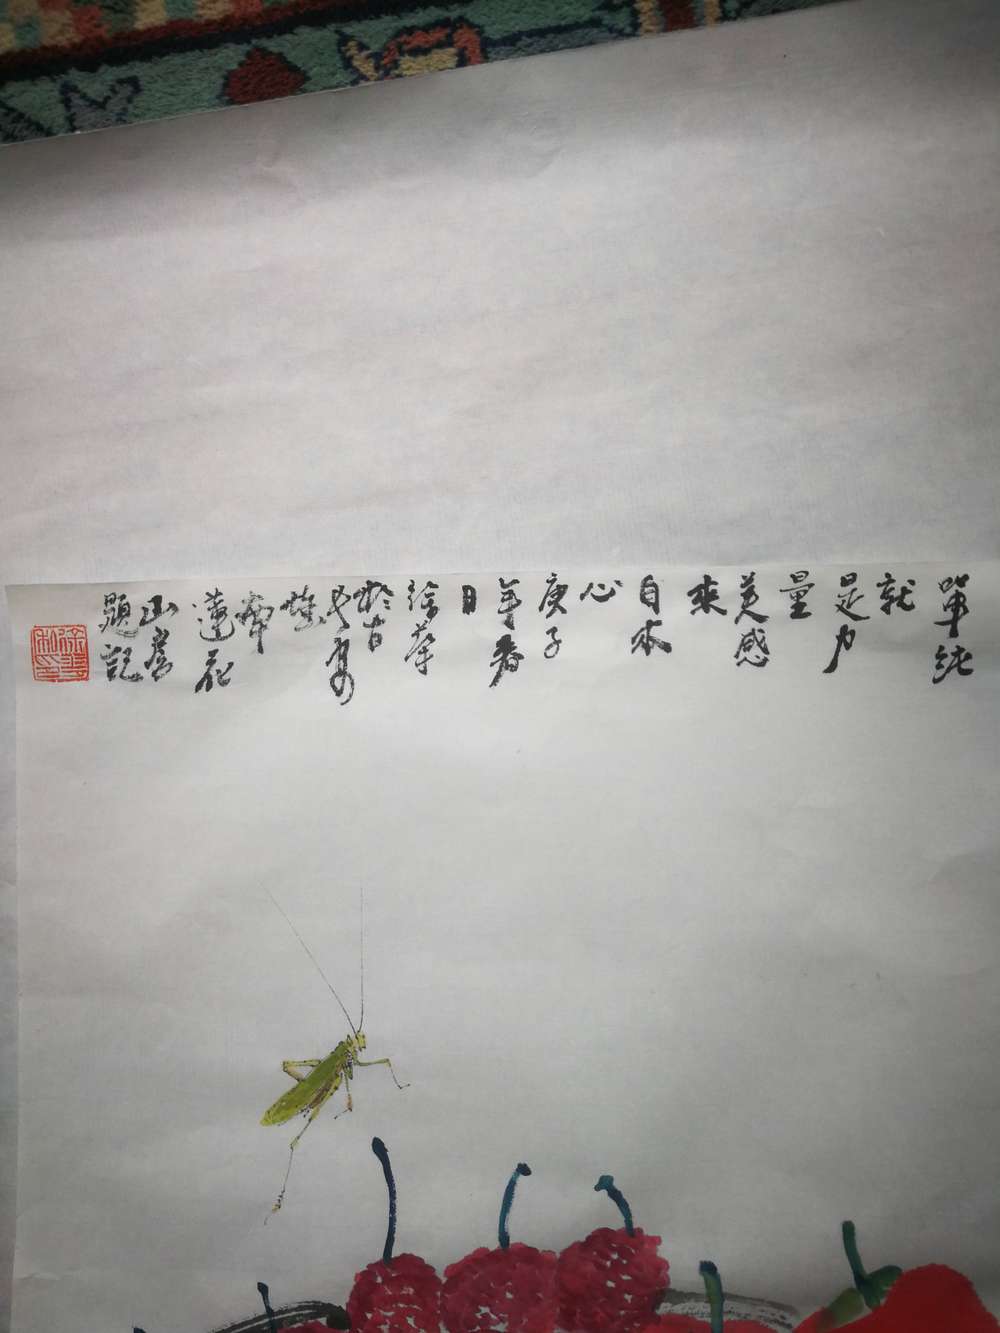 單純
就
是力
量
美感
來
自本
心
庚子
年春
日
徐華
於古
蓮花
山房
題記